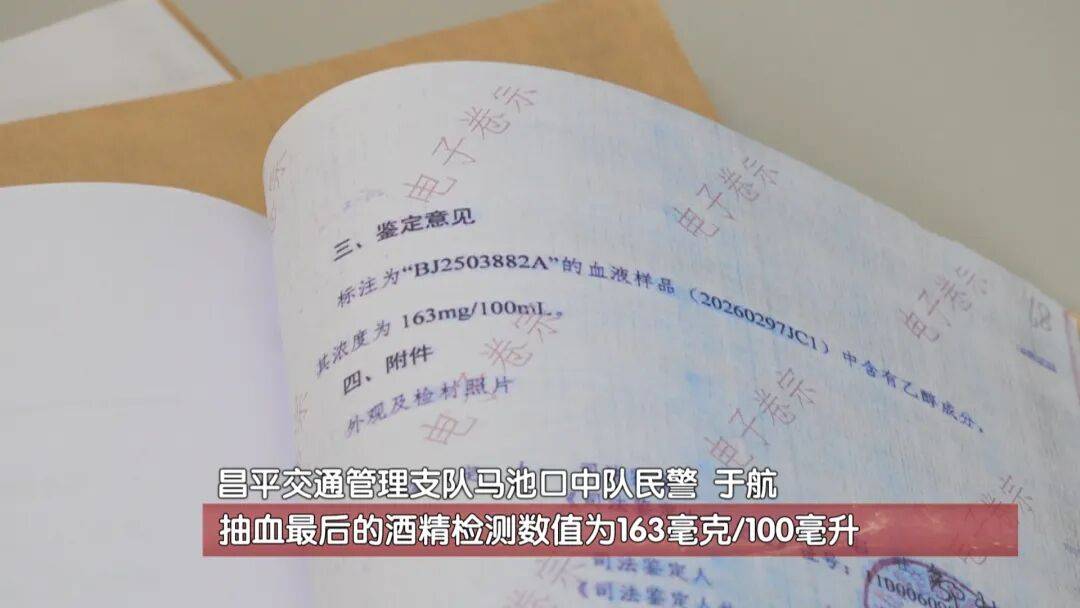 电子卷宗
电子卷宗
三、鉴定意见
标注为“BJ2503882A”的血液样品（20260297JC1）中含有乙醇成分，
其浓度为 163mg/100mL。
电子卷宗
四、附件
外观及检材照片
电子卷宗
昌平交通管理支队马池口中队民警 于航
抽血最后的酒精检测数值为163毫克/100毫升
司法鉴定人
《司法鉴定人